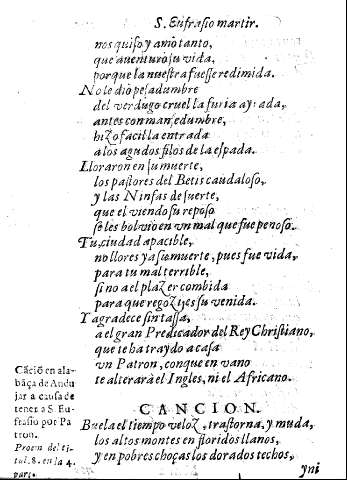 S. Eufrasio martir.
nos quiso y amo tanto,
que auenturo su vida,
porque la nuestra fuesse redimida.
No le dio pesadumbre
del verdugo cruel la furia ayrada,
antes con mansedumbre,
hizo facil la entrada
a los agudos filos de la espada.
Lloraron en su muerte,
los pastores del Betis caudaloso,
y las Ninfas de suerte,
que el viendo su reposo
se les boluio en vn mal que fue penoso.
Tu, ciudad apacible,
no llores ya su muerte, pues fue vida,
para tu mal terrible,
si no a el plazer combida
para que regozijes su venida.
Y agradece sin tassa,
a el gran Predicador del Rey Christiano,
que te ha traydo a casa
vn Patron, con que en vano
te alterarà el Ingles, ni el Africano.
CANCION.
Buela el tiempo veloz, trastorna, y muda,
los altos montes en floridos llanos,
y en pobres choças los dorados techos,
yni
Cãciõ en ala-
bãça de Andu
jar a causa de
tener a S. Eu-
frasio por Pa
tron.
Proem del ti-
tul. 8. en la 4.
part.